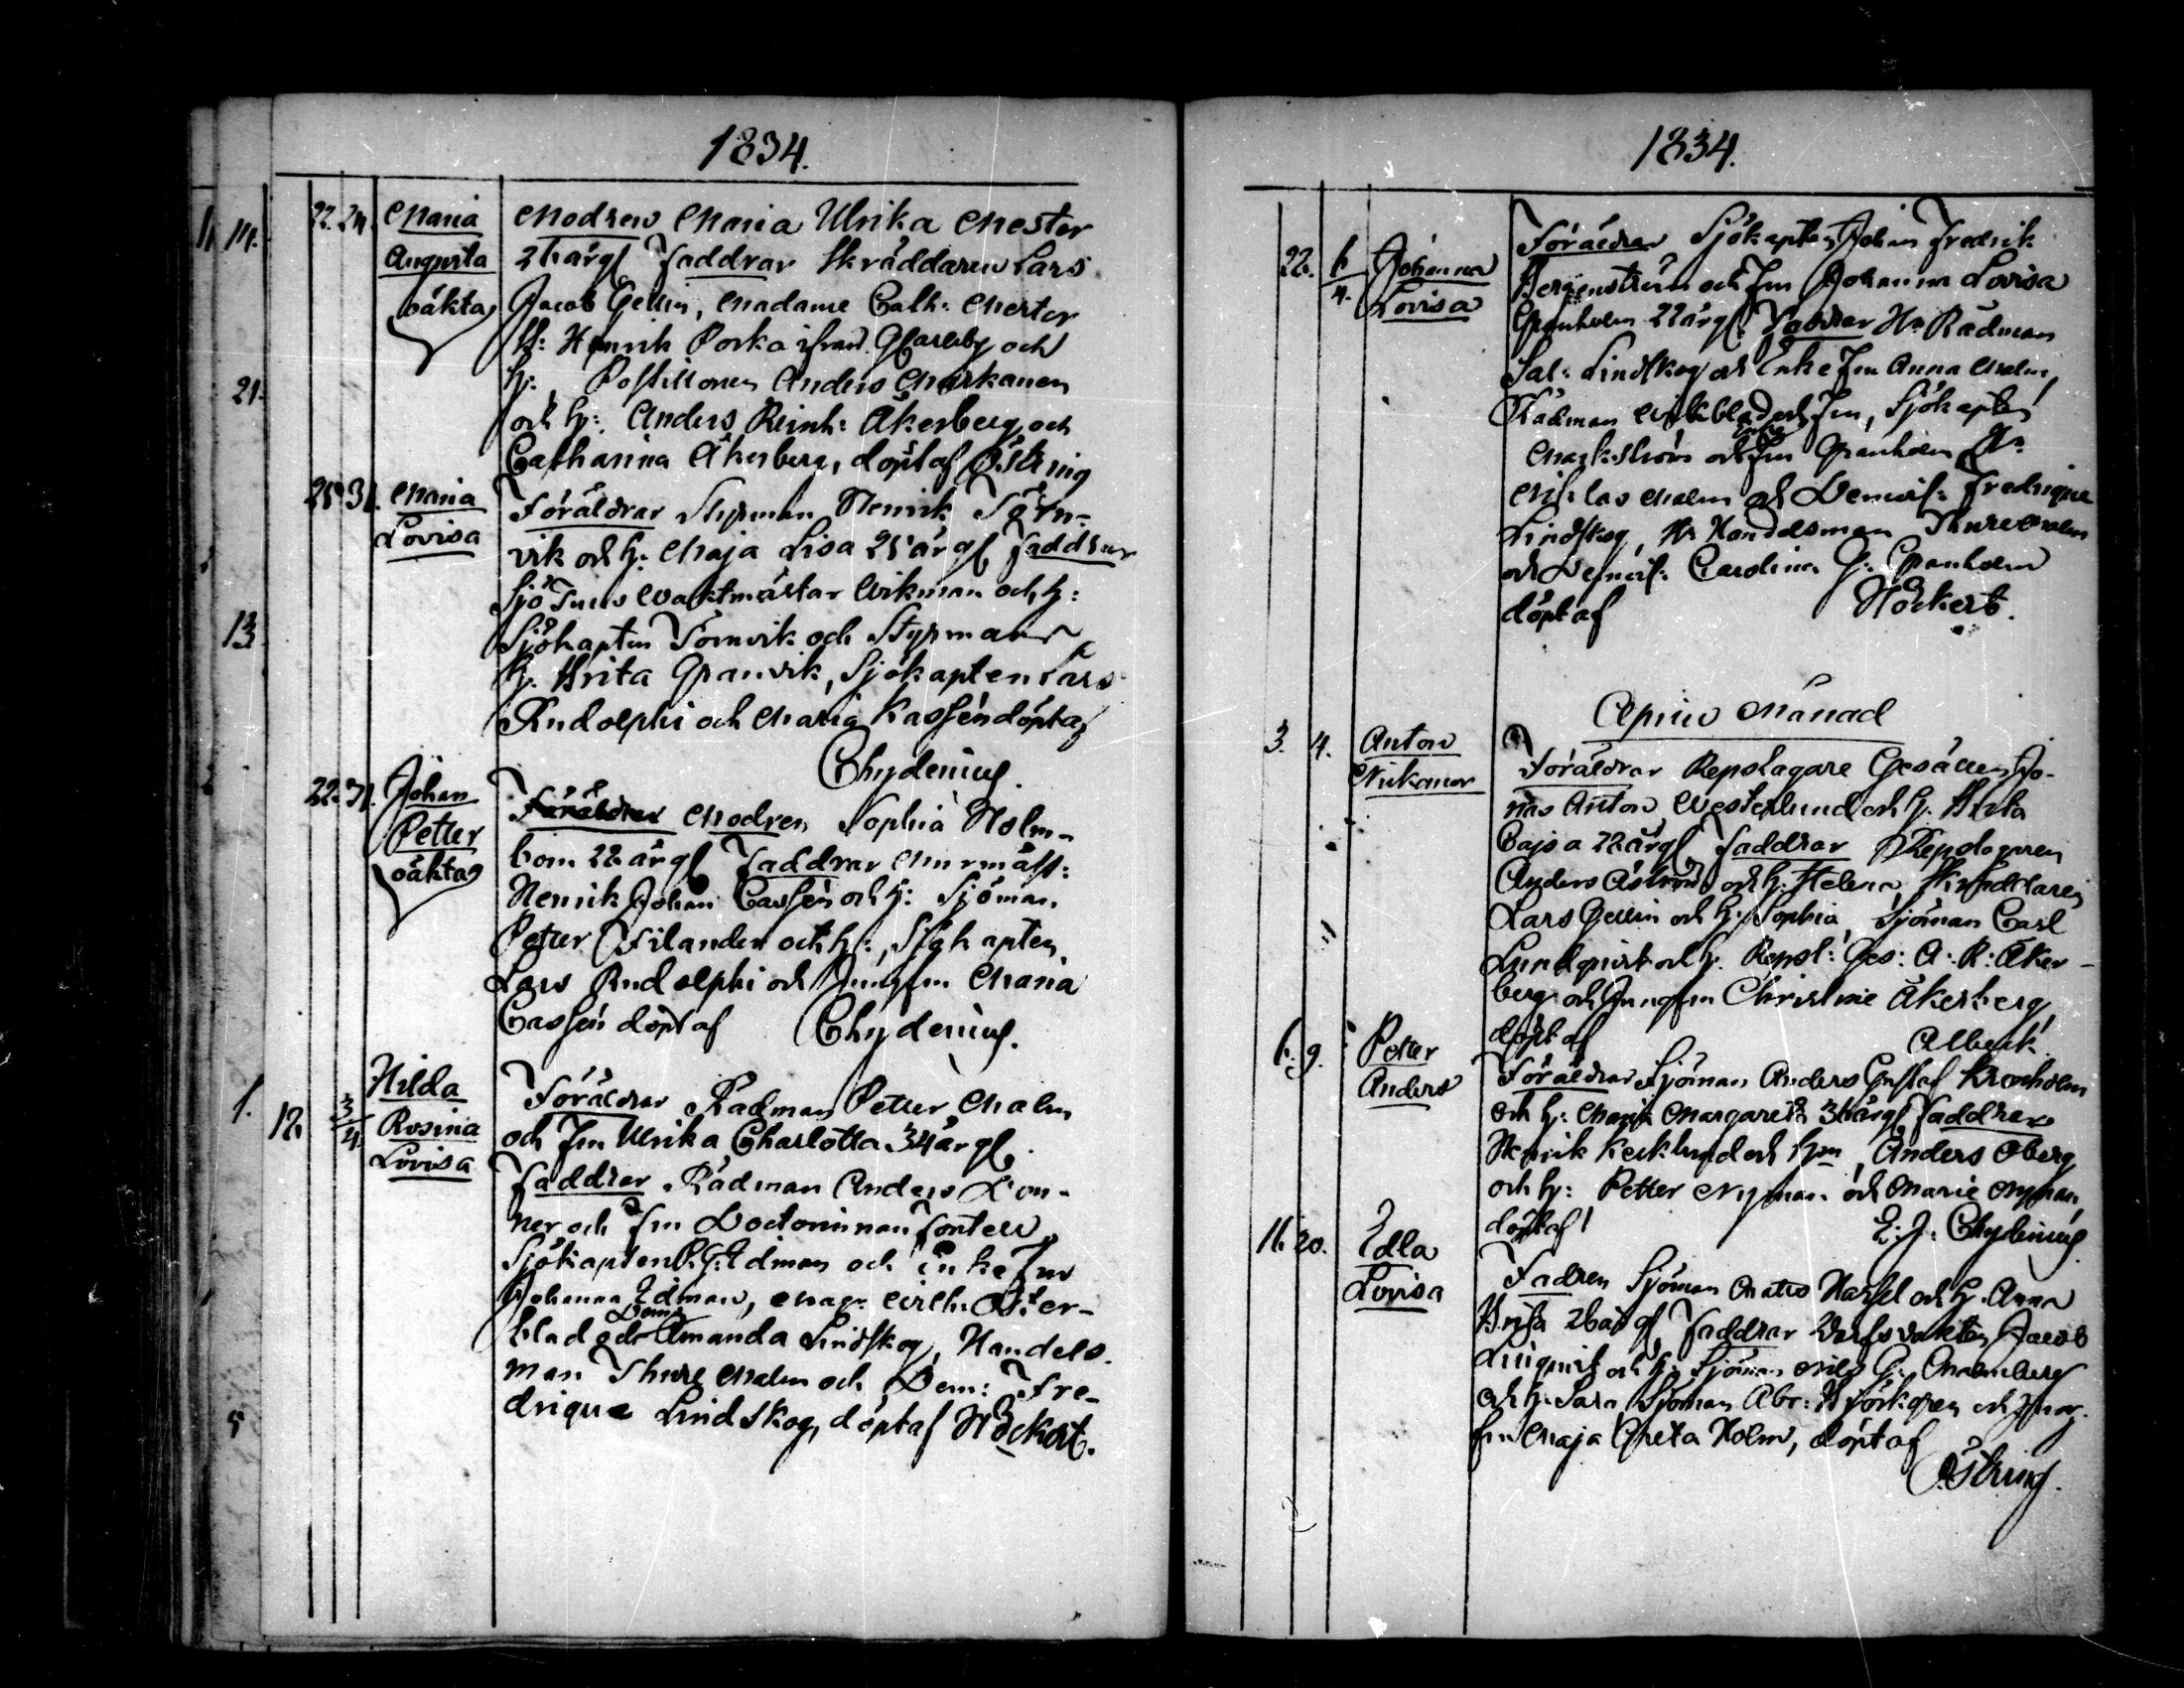 1834.
22. 24. Maria Modren Maria Ulrika Mester
Augusta 26 årgl Faddrar Skräddaren Lars
oäkta Jacob Gellin, Madame Cath: Mester
B: Henrik Porka ifrån Gkarleby och
h: Postillionen Anders Markanen
och h: Anders Reinh: Åkerberg och
Catharina Åkerberg, döpt af Östring
25. 31. Maria Föräldrar Styrman Henrik Törn-
Lovisa vik och h: Maja Lisa 25 årgl Faddrar
Sjö Tulls Waktmästar Wikman och h:
Sjökapten Törnvik och Styrmans
h. Brita Granvik, Sjökapten Lars
Rudolphi och Maria Kassén döpt af
Chydenius.
22. 31. Johan Föräldrar Modren Sophia Holm-
Petter bom 22 årgl Faddrar Murmäst:
oäkta Henrik Johan Cassén och h: Sjöman
Petter Filander och h:, Sjökapten
Lars Rudolphi och Jungfrun Maria
Cassén döpt af Chydenius.
Hilda
12. 3/4. Rosina Föräldrar Rådman Petter Malm
Lovisa och Fru Ulrika Charlotta 34 årgl.
Faddrar Rådman Anders Don-
ner och Fru Doctorinnan Fontell
Sjökapten P. G. Edman och Enke Fru
Johanna Edman, Mag: Wilh: Öster-
blad och Dem: Amanda Lindskog, Handels-
man Thure Malm och Dem: Fre-
drique Lindskog, döpt af Höckert.
1834.
22. 6/4. Johanna Föräldrar Sjökapten Johan Fredrik
Lovisa Bergenström och Fru Johanna Lovisa
Granholm 22 årgl. Faddrar Hr Rådman
Sal: Lindskog och Enke Fru Anna Malm,
Rådman och Fru, Sjökapten
Markström och Enke Fru Granholm Hr
Nicklas Malm och Demois: Fredrique
Lindskog, Hr Handelsman Thure Malm
och Demois: Carolina G: Granholm
döpt af Höckert.
April Månad
3. 4. Anton Föräldrar Repslagare Gesällen Jo-
Nikanor nas Anton Westerlund och h. Brita
Cajsa 22 årgl Faddrar Repslagaren
Anders Åström och h. Helena, Skräddaren
Lars Gellin och h. Sophia, Sjöman Carl
Lundqvist och h. Repsl: Ges: A: R: Åker-
berg och Jungfrun Christine Åkerberg,
döpt af Alberk
6. 9. Petter Föräldrar Sjöman Anders Gustaf Kronholm
Anders och h: Maria Margareta 36 årgl Faddrar
Henrik Kecklund och hm, Anders Öberg
och h: Petter Nyman och Marie Nyman,
döpt af E: J: Chydenius.
16. 20. Edla Fadren Sjöman Mats Hassel och h. Anna
Lovisa Brita 26 årgl, Faddrar Jacob
Lingvist och h: Sjöman Nils G: Malmberg
och h: Sara Sjöman Abr: Björkgren och Jung-
frun Maja Greta Holm, döpt af
Östring.